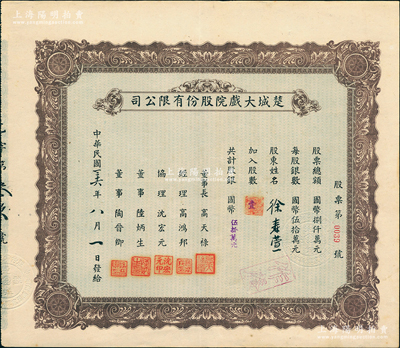 上海陽明拍賣
楚城大戲院股份有限公司
股票第 0039 號
股票總額 國幣捌仟萬元
每股銀數 國幣伍拾萬元
股東姓名
加入股數 壹
共計股銀 國幣 伍拾萬元
董事長 高天棟
經理 高鴻邦
協理 沈宏元
董事 陸炳生
董事 陶晉卿
中華民國 年八月一日發給